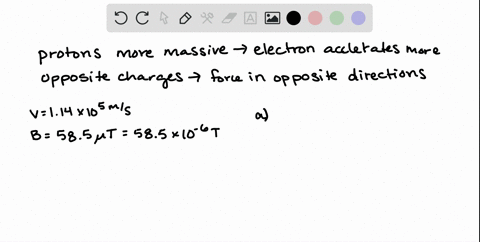 protons more massive → electron accletates more
opposite charges → force in opposite directions
V=1.14×10⁵ m/s
a)
B = 58.5 μT = 58.5×10⁻⁶ T